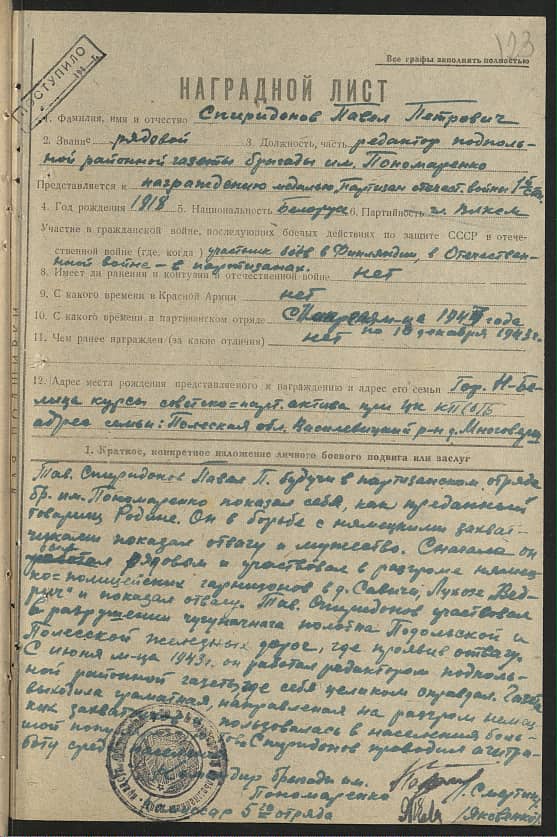 123
ПОСТУПИЛО
Все графы заполнять полностью
НАГРАДНОЙ ЛИСТ
1. Фамилия, имя и отчество Спиридонов Павел Петрович
2. Звание рядовой 3. Должность, часть редактор подполь-
ной районной газеты бригады им. Пономаренко
Представляется к награждению медалью, Партизан отечест. войны 1й ст.
4. Год рождения 1918 5. Национальность белорус 6. Партийность чл. ВЛКСМ
Участие в гражданской войне, последующих боевых действиях по защите СССР в отече-
ственной войне (где, когда) участник боёв в Финляндии, в Отечествен-
ной войне - в партизанах.
8. Имеет ли ранения и контузии в отечественной войне нет
9. С какого времени в Красной Армии нет
10. С какого времени в партизанском отряде м-ца года
по 18 декабря 1943 г.
11. Чем ранее награжден (за какие отличия) нет
12. Адрес места рождения представляемого к награждению и адрес его семьи Гор. Н-Бе-
лица курсы советско=парт. актива при ЦК КП(б)Б
адрес семьи: Полесская обл. Василевицкий р-н д.
1. Краткое, конкретное изложение личного боевого подвига или заслуг
Тов. Спиридонов Павел П. будучи в партизанском отряде
бр. им. Пономаренко показал себя, как преданный
товарищ Родине. Он в борьбе с немецкими захват-
чиками показал отвагу и мужество. Сначала он
рядовым и участвовал в разгроме немец-
ко=полицейских гарнизонов в д. Савичи,
и показал отвагу. Тов. Спиридонов участвовал
в разрушении полотна и
Полесской железных дорог, где проявив отвагу.
С июня м-ца 1943 г. он работал редактором подполь-
ной районной газеты, где себя целиком оправдал. Газета
выходила грамотная, направленная на разгром немец-
ких пользовалась в населения боль-
шой Спиридонов проводил агитра-
боту
бригады им.
Пономаренко
5го отряда